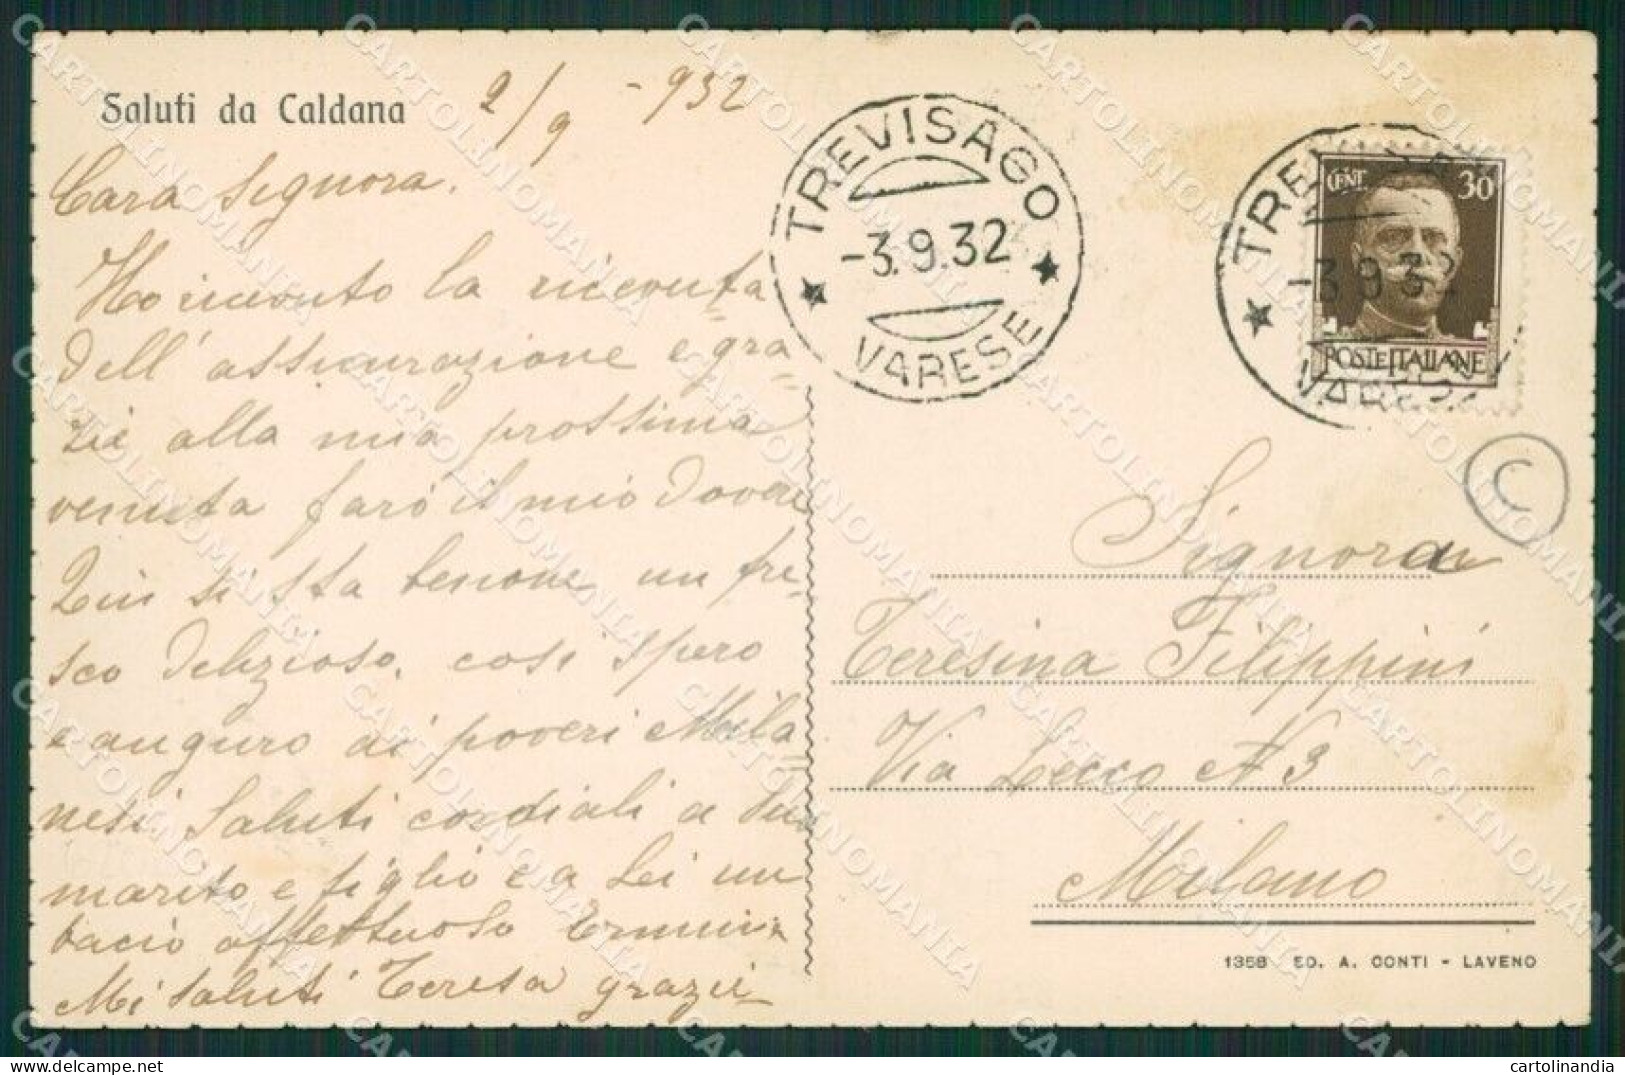 Saluti da Caldana 2/9 - 932
Cara Signora.
Ho ricevuto la ricevuta
dell'assicurazione e gra
zie alla mia prossima
venuta farò il mio dovere
Qui si sta benone un fre-
sco delizioso, così spero
e auguro ai poveri Mila
nesi. Saluti cordiali a Suo
marito e figlio e a Lei un
bacio affettuoso
Mi saluti Teresa grazie
TREVISAGO
-3.9.32
VARESE
TREVISAGO
-3.9.32
VARESE
CENT. 30
POSTE ITALIANE
C
Signora
Teresina Filippini
Via Lecco N 3
Milano
1358 ED. A. CONTI - LAVENO
CARTOLINOMANIA
cartolinandia